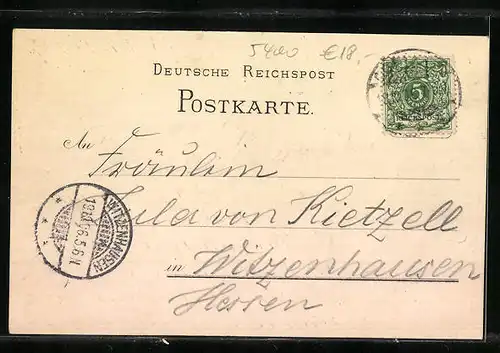 5400 €18,-
DEUTSCHE REICHSPOST
POSTKARTE.
An
Fräulein
Jula von Kietzell
in Witzenhausen
Hessen
5
WITZENHAUSEN